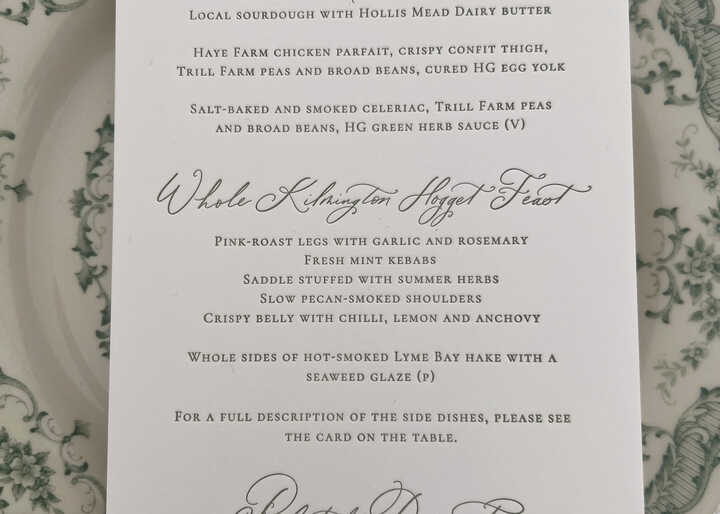 Local sourdough with Hollis Mead Dairy butter
Haye Farm chicken parfait, crispy confit thigh,
Trill Farm peas and broad beans, cured HG egg yolk
Salt-baked and smoked celeriac, Trill Farm peas
and broad beans, HG green herb sauce (V)
Whole Kilmington Hogget Feast
Pink-roast legs with garlic and rosemary
Fresh mint kebabs
Saddle stuffed with summer herbs
Slow pecan-smoked shoulders
Crispy belly with chilli, lemon and anchovy
Whole sides of hot-smoked Lyme Bay hake with a
seaweed glaze (p)
For a full description of the side dishes, please see
the card on the table.